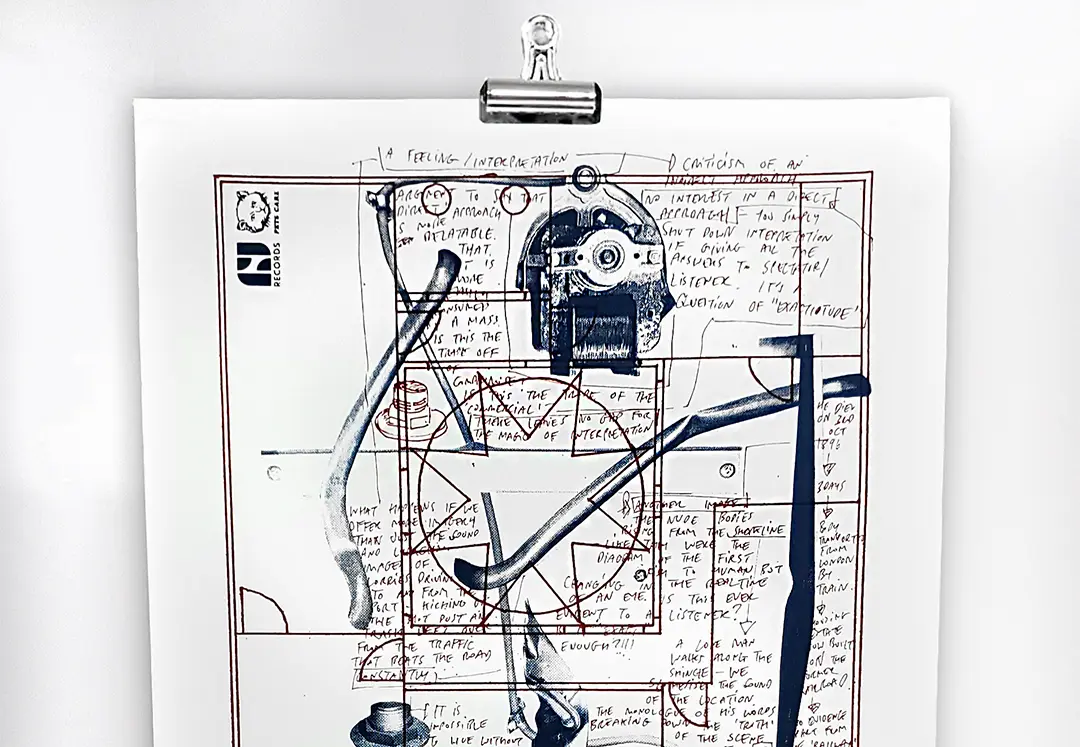 A FEELING / INTERPRETATION
CRITICISM OF AN
INDIRECT APPROACH
ARGUMENT TO SAY THAT
DIRECT APPROACH
IS MORE
RELATABLE.
THAT
IT IS
MORE
A MASS.
IS THIS THE
TRADE OFF
OF
IS THIS THE TRADE OF THE
'COMMERCIAL'
THERE LEAVES NO GAP FOR
THE MAGIC OF INTERPRETATION
NO INTEREST IN A DIRECT
APPROACH - YOU SIMPLY
SHUT DOWN INTERPRETATION
IF GIVING ALL THE
ANSWERS TO SPECTATOR/
LISTENER. IT'S A
QUESTION OF "EXACTITUDE"
PETS CARE
RECORDS
HE DIED
ON 3RD
OCT
1896
3 DAYS
BODY
TRANSPORTED
FROM
LONDON
BY
TRAIN.
WHAT HAPPENS IF WE
OFFER MORE IMAGERY
THAN JUST THE SOUND
AND
IMAGES OF
LORRIES DRIVING
TO AND FROM THE
PORT KICKING UP
THE
FROM THE TRAFFIC
THAT BEATS THE ROAD
CONSTANTLY
ANOTHER IMAGE
THE NUDE BODIES
RISING FROM THE SHORELINE
LIKE THEY WERE THE
DIAGRAM OF THE FIRST
TO HUMAN BUT
CHANGING IN THE REALTIME
OF AN EYE. IS THIS EVER
EVIDENT TO A LISTENER?
EXACT
ENOUGH?!!!
A LONE MAN
WALKS ALONG THE
SHINGLE - WE
THE SOUND
OF THE LOCATION.
THE MONOLOGUE OF HIS WORDS
BREAKING DOWN THE 'TRUTH'
OF THE SCENE
ESTATE
NOW BUILT
ON THE
FORMER
RAILROAD.
NO EVIDENCE
'RAILWAY'
IT IS
IMPOSSIBLE
TO LIVE WITHOUT